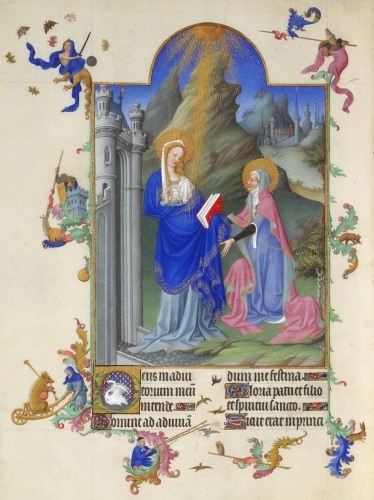 Deus in adiu
torium meū
intende
Domine ad adiuvā
dum me festina.
Gloria patri et filio
et spiritui sancto.
Sicut erat in princi